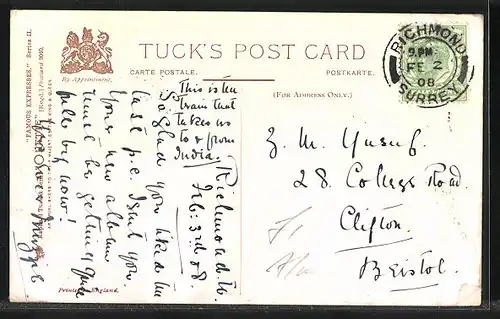 TUCK'S POST CARD
By Appointment.
CARTE POSTALE.
POSTKARTE.
(FOR ADDRESS ONLY.)
RICHMOND
9.PM
FE 2
08
SURREY
"FAMOUS EXPRESSES," Series II.
This is the
train that
takes us
to & from
India.
Richmond
Feb: 3rd 08.
So glad you liked the
last p.c. I sent you
Your new album
must be getting quite
full by now!
Z. M. Yusuf.
28 College Road.
Clifton.
Bristol.